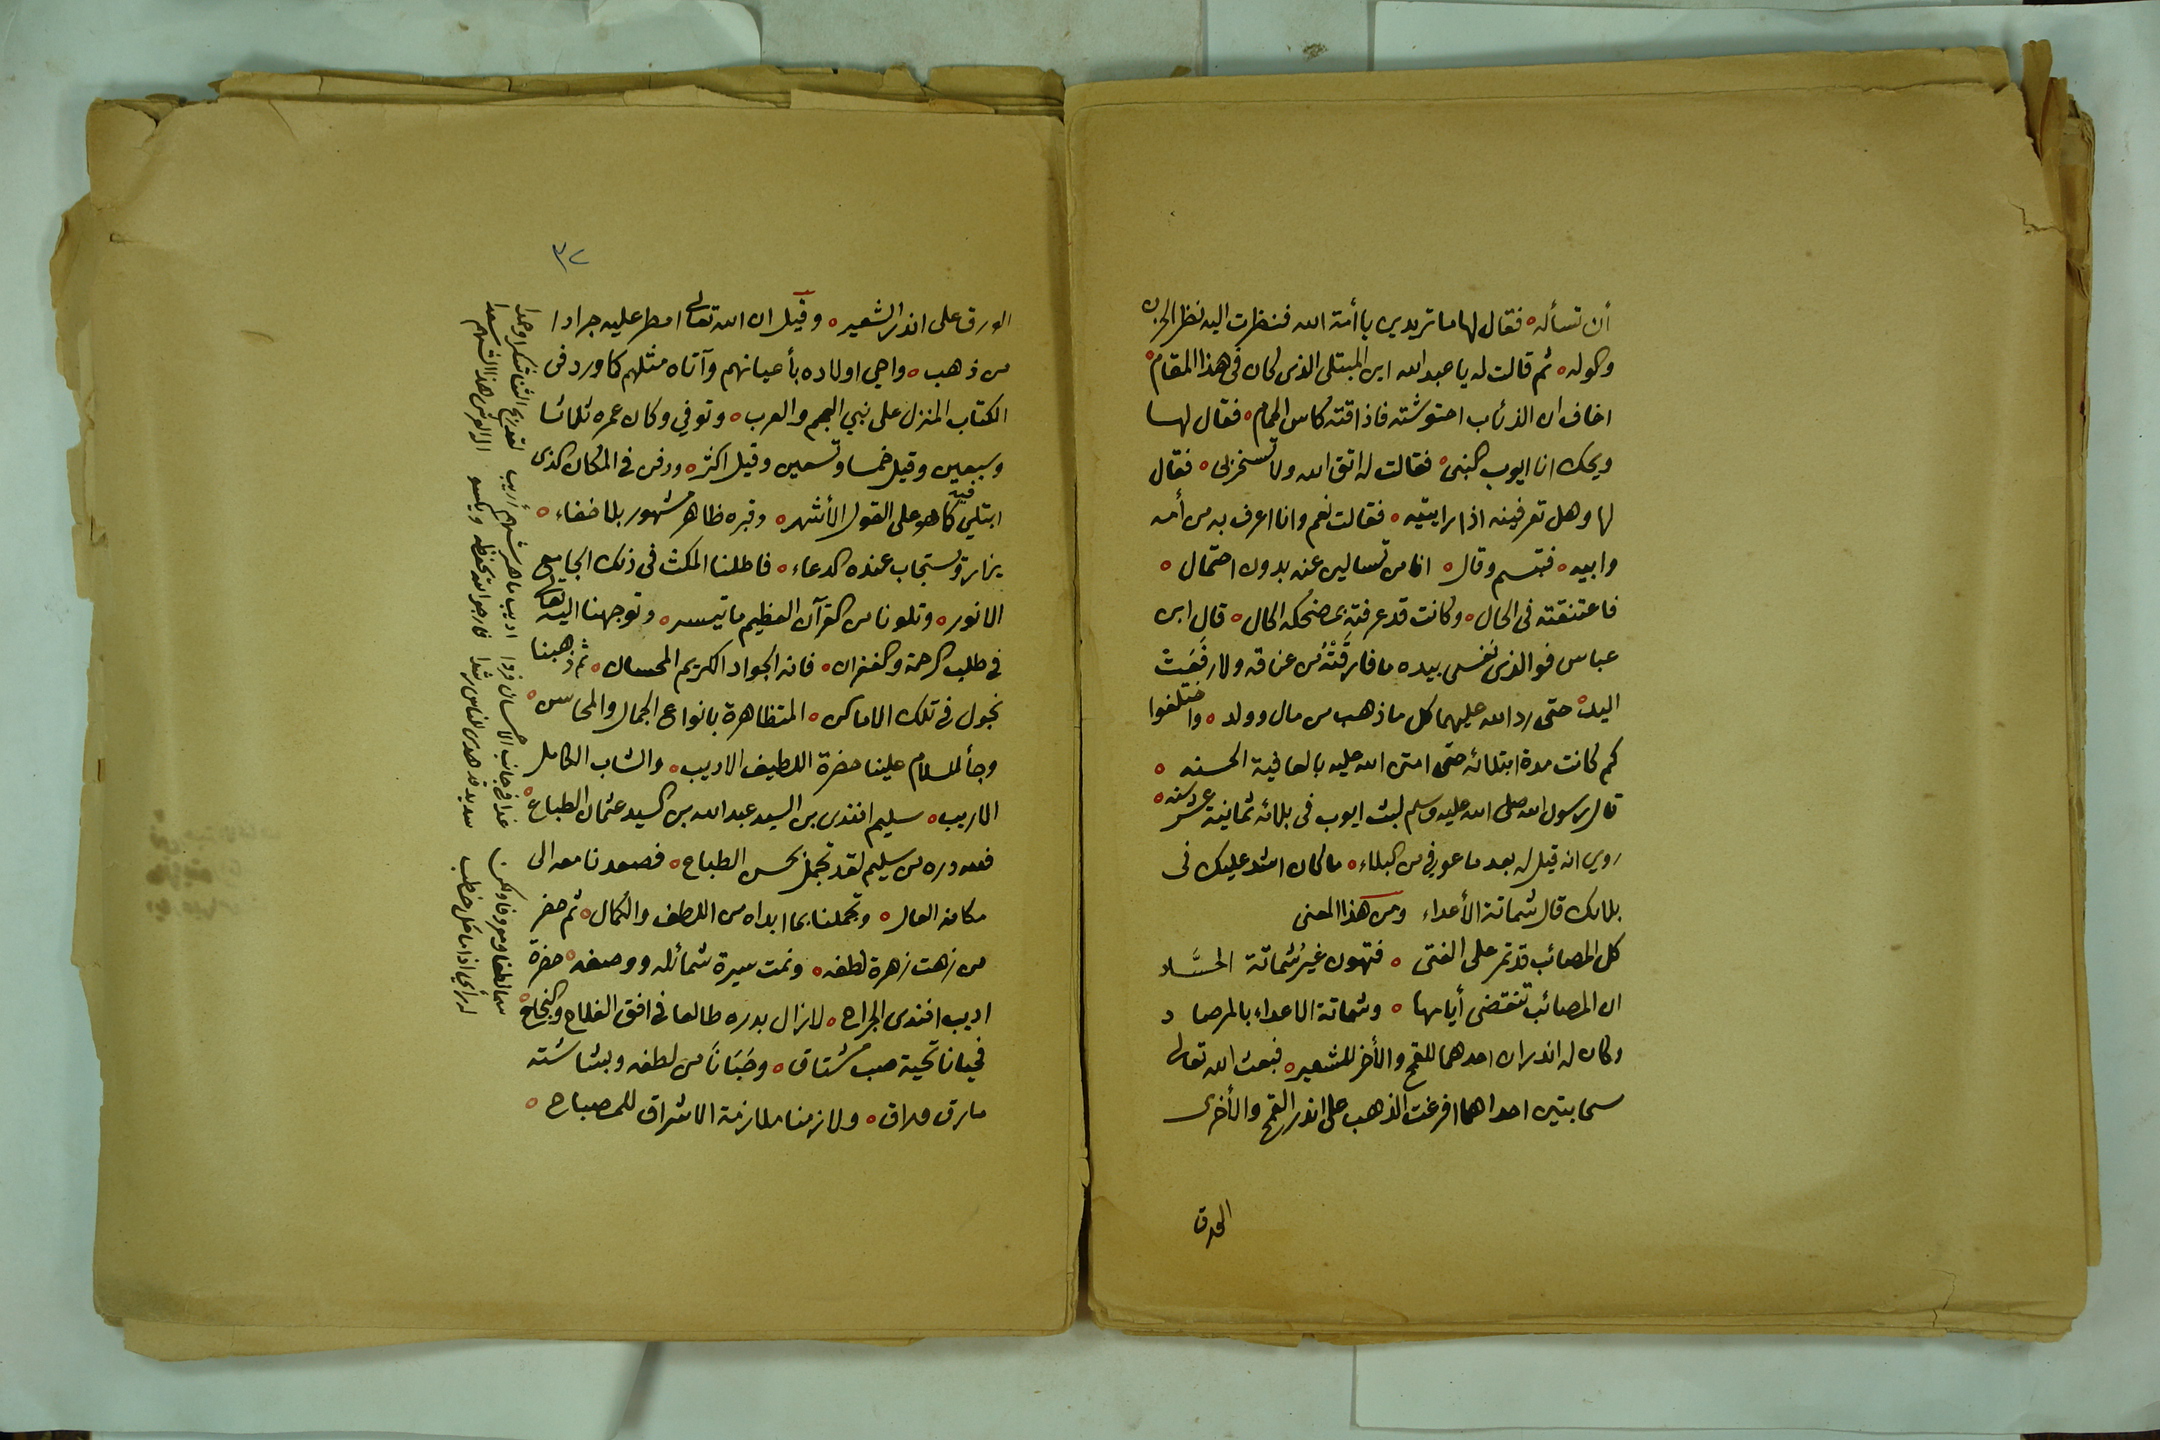 أن تسأله ه فقال لها ما تريدين يا أمة الله فنظرت اليه نظر الحزين
وكوله ه ثم قالت له يا عبد الله اين المبتلى الذى كان فى هذا المقام ه
اخاف ان الذئاب احتوشته فاذاقته كاس الحمام ه فقال لها
ويحك انا ايوب النبى ه فقالت له اتق الله ولا تسخر بى ه فقال
لها وهل تعرفينه اذا رايتيه ه فقالت نعم وانا اعرف به من أمه
وابيه ه فتبسم وقال ه انا من تسالين عنه بدون احتمال ه
فاعتنقته فى الحال ه وكانت قد عرفته بمضحكه الحال ه قال ابن
عباس فوالذى نفسى بيده ما فارقَتْهُ من عناقه ولا رفَعَتْ
اليد ه حتى رد الله عليهما كل ما ذهب من مال وولد ه واختلفوا
كم كانت مدة ابتلائه حتى امتن الله عليه بالعافية الحسنه ه
قال رسول الله صلى الله عليه وسلم لبث ايوب فى بلائه ثمانية عشر سنه ه
روى انه قيل له بعد ما عوفى من البلاء ه ما كان اشد عليك فى
بلائك قال شماتة الأعداء ومن هذا المعنى
كل المصائب قد تمر على الفتى ه فتهون غيرُ شماتة الحسَّاد
ان المصائب تنقضى أيامها ه وشماتة الاعداء بالمرصاد
وكان له اندران احدهما للقمح والأخر للشعير ه فبعث الله تعالى
سحابتين احداهما افرغت الذهب على اندر القمح والأخرى
الورق
٣٢
الورق على اندر الشعير ه وقيل ان الله تعالى امطر عليه جرادا
من ذهب ه واحي اولاده بأعيانهم وآتاه مثلهم كما ورد فى
الكتاب المنزل على نبي العجم والعرب ه وتوفي وكان عمره ثلاثا
وسبعين وقيل خمسا وتسعين وقيل اكثر ه ودفن فى المكان الذى
ابتلي فيه كما هو على القول الأشهر ه وقبره ظاهر مشهور بلا خفاء ه
يزار ويستجاب عنده الدعاء ه فاطلنا المكث فى ذلك الجامع
الانور ه وتلونا من القرآن العظيم ما تيسر ه وتوجهنا اليه تعالى
فى طلب الرحمة والغفران ه فانه الجواد الكريم المحسان ه ثم ذهبنا
نجول فى تلك الاماكن ه المتظاهرة بانواع الجمال والمحاسن ه
وجأ للسلام علينا حضرة اللطيف الاديب ه والشاب الكامل
الاريب ه سليم افندى بن السيد عبد الله بن السيد عثمان الطباع ه
فلله دره من سليم لقد تجمل بحسن الطباع ه فصعدنا معه الى
مكانه العال ه وتجملنا بما ابداه من اللطف والكمال ه ثم حضر
من زهت زهرة لطفه ه ونمت سيرة شمائله ووصفه ه حضرة
اديب افندى الجراح ه لازال بدره طالعا فى افق الفلاح والنجاح ه
فحيانا تحية صب مشتاق ه وحَبَانا من لطفه وبشاشته
مارق وراق ه ولازمنا ملازمة الاشراق للمصباح ه
اديب ماهر شهم أريب